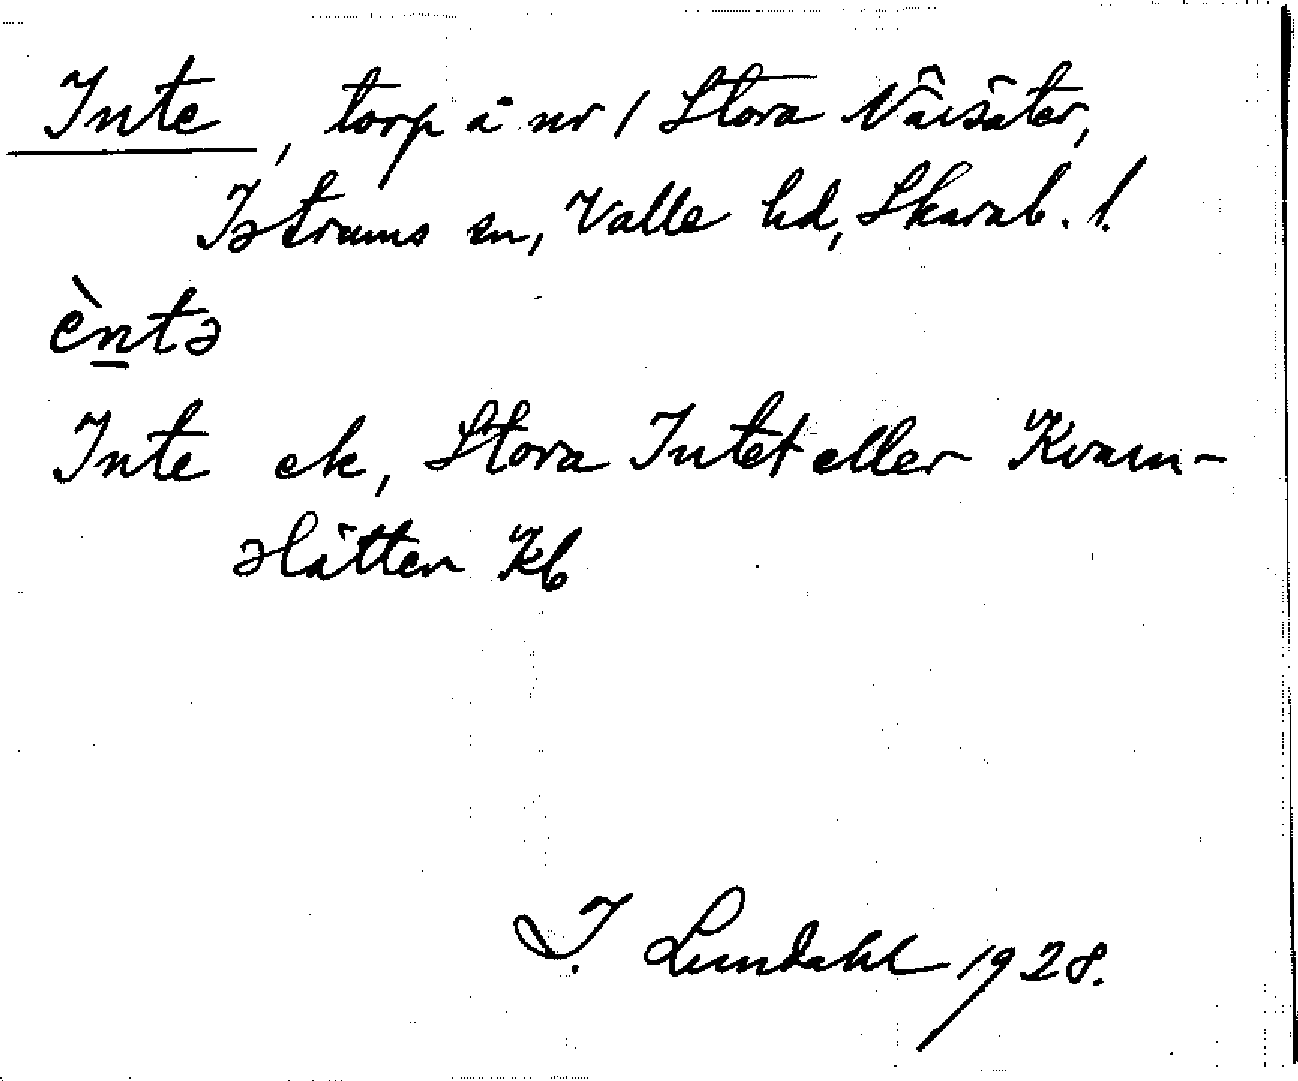 Inte, torp å nr 1 Stora Våksäter,
Istrums sn, Valle hd, Skarab. l.
èntə
Inte ek, Stora Intet eller Kvarn-
slätten Kb
I. Lundahl 1928.